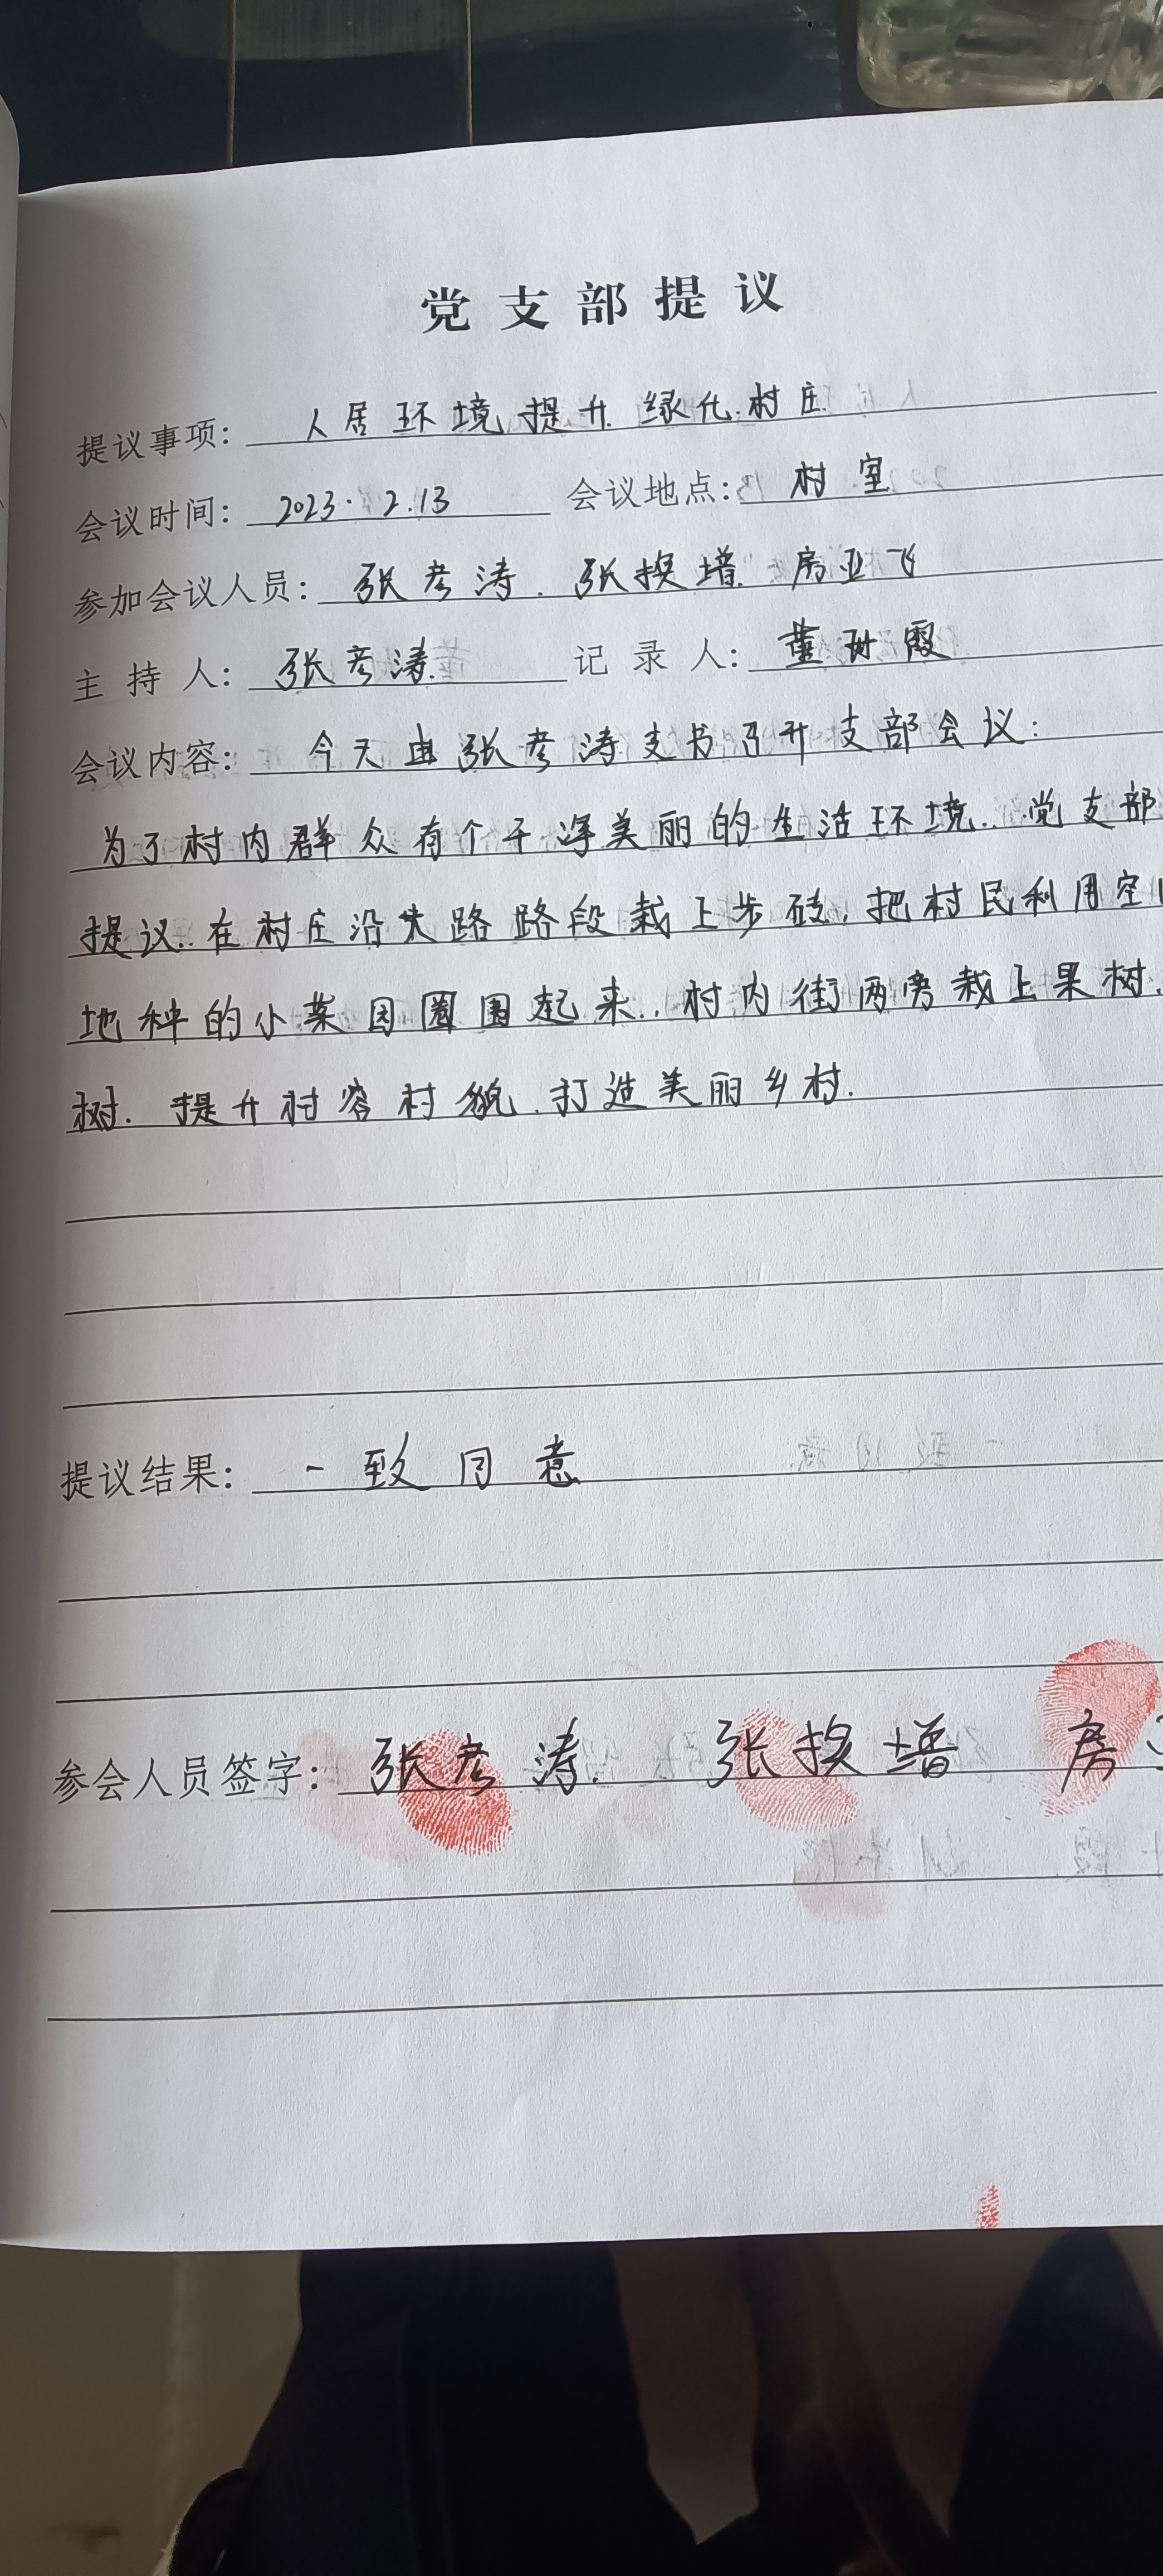 党支部提议
提议事项: 人居环境提升 绿化村庄
会议时间: 2023.2.13 会议地点: 村室
参加会议人员: 张彦涛. 张换增. 房亚飞
主持人: 张彦涛. 记录人: 董 霞
会议内容: 今天由张彦涛支书召开支部会议:
为了村内群众有个干净美丽的生活环境..党支部
提议..在村庄沿大路路段栽上步砖,把村民利用空
地种的小菜园圈围起来..村内街两旁栽上果树.
树. 提升村容村貌.打造美丽乡村.
提议结果: 一致同意
参会人员签字: 张彦涛. 张换增 房